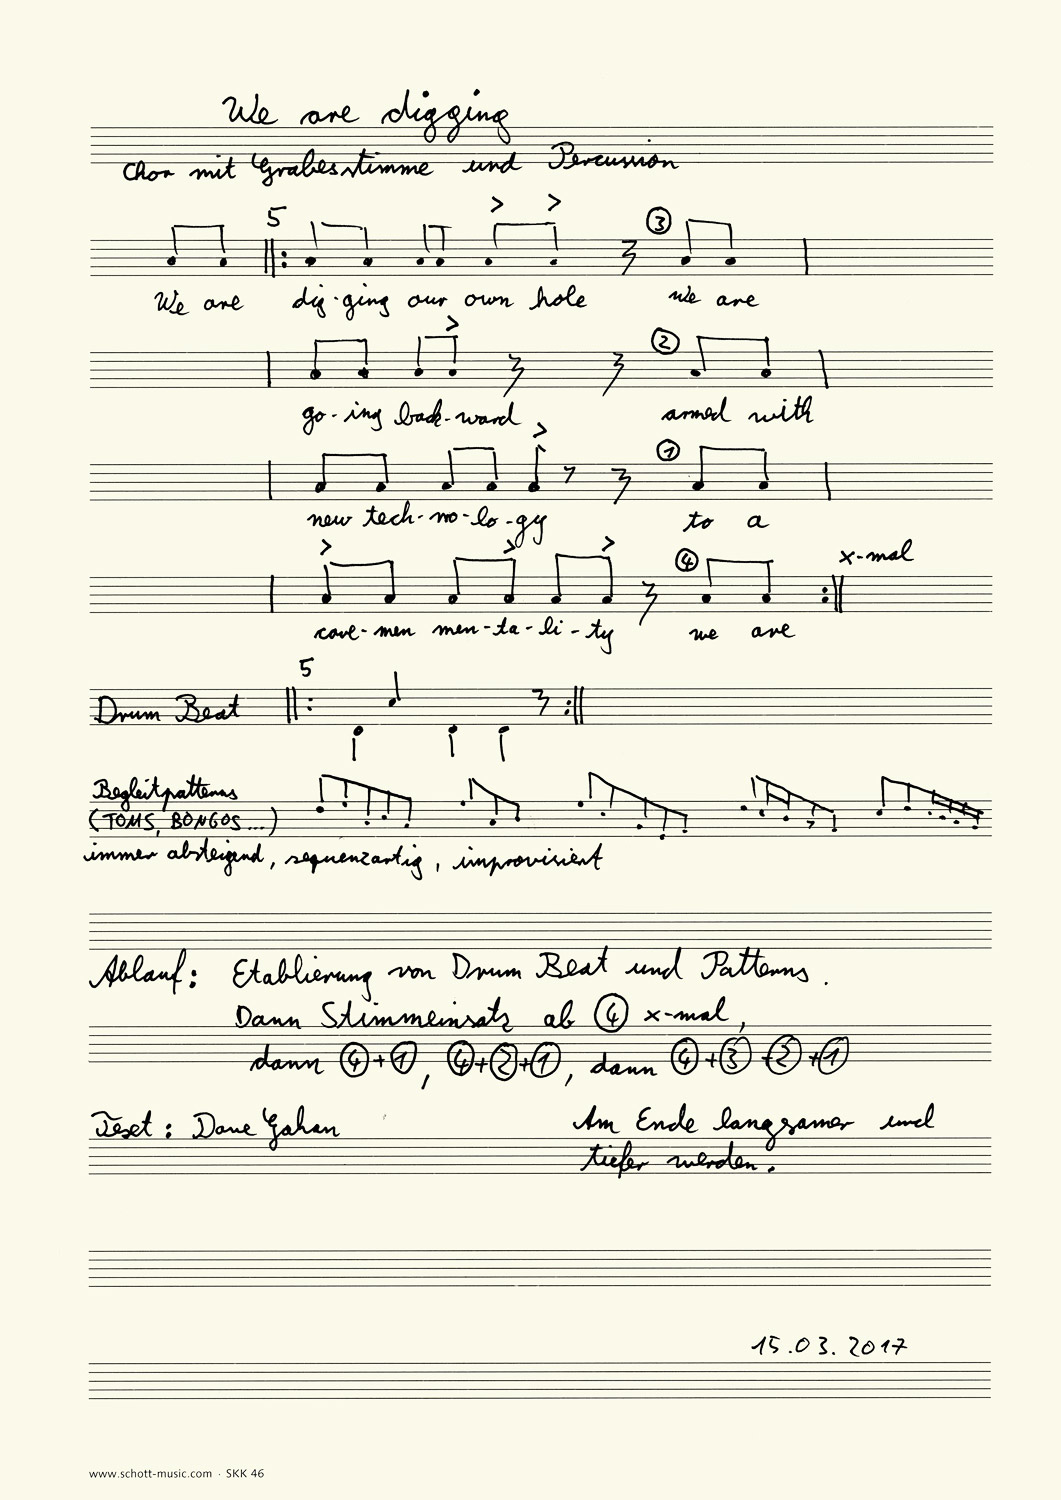 We are digging
Chor mit Grabesstimme und Percussion
5 > > ③
We are dig-ging our own hole we are
> ②
go-ing back-ward armed with
> ①
new tech-no-lo-gy to a
> > > ④ x-mal
cave-men men-ta-li-ty we are
5
Drum Beat
Begleitpatterns
(TOMS, BONGOS...)
immer absteigend, sequenzartig, improvisiert
Ablauf: Etablierung von Drum Beat und Patterns.
Dann Stimmeinsatz ab ④ x-mal,
dann ④+①, ④+②+①, dann ④+③+②+①
Text: Dave Gahan
Am Ende langsamer und
tiefer werden.
15.03.2017
www.schott-music.com · SKK 46